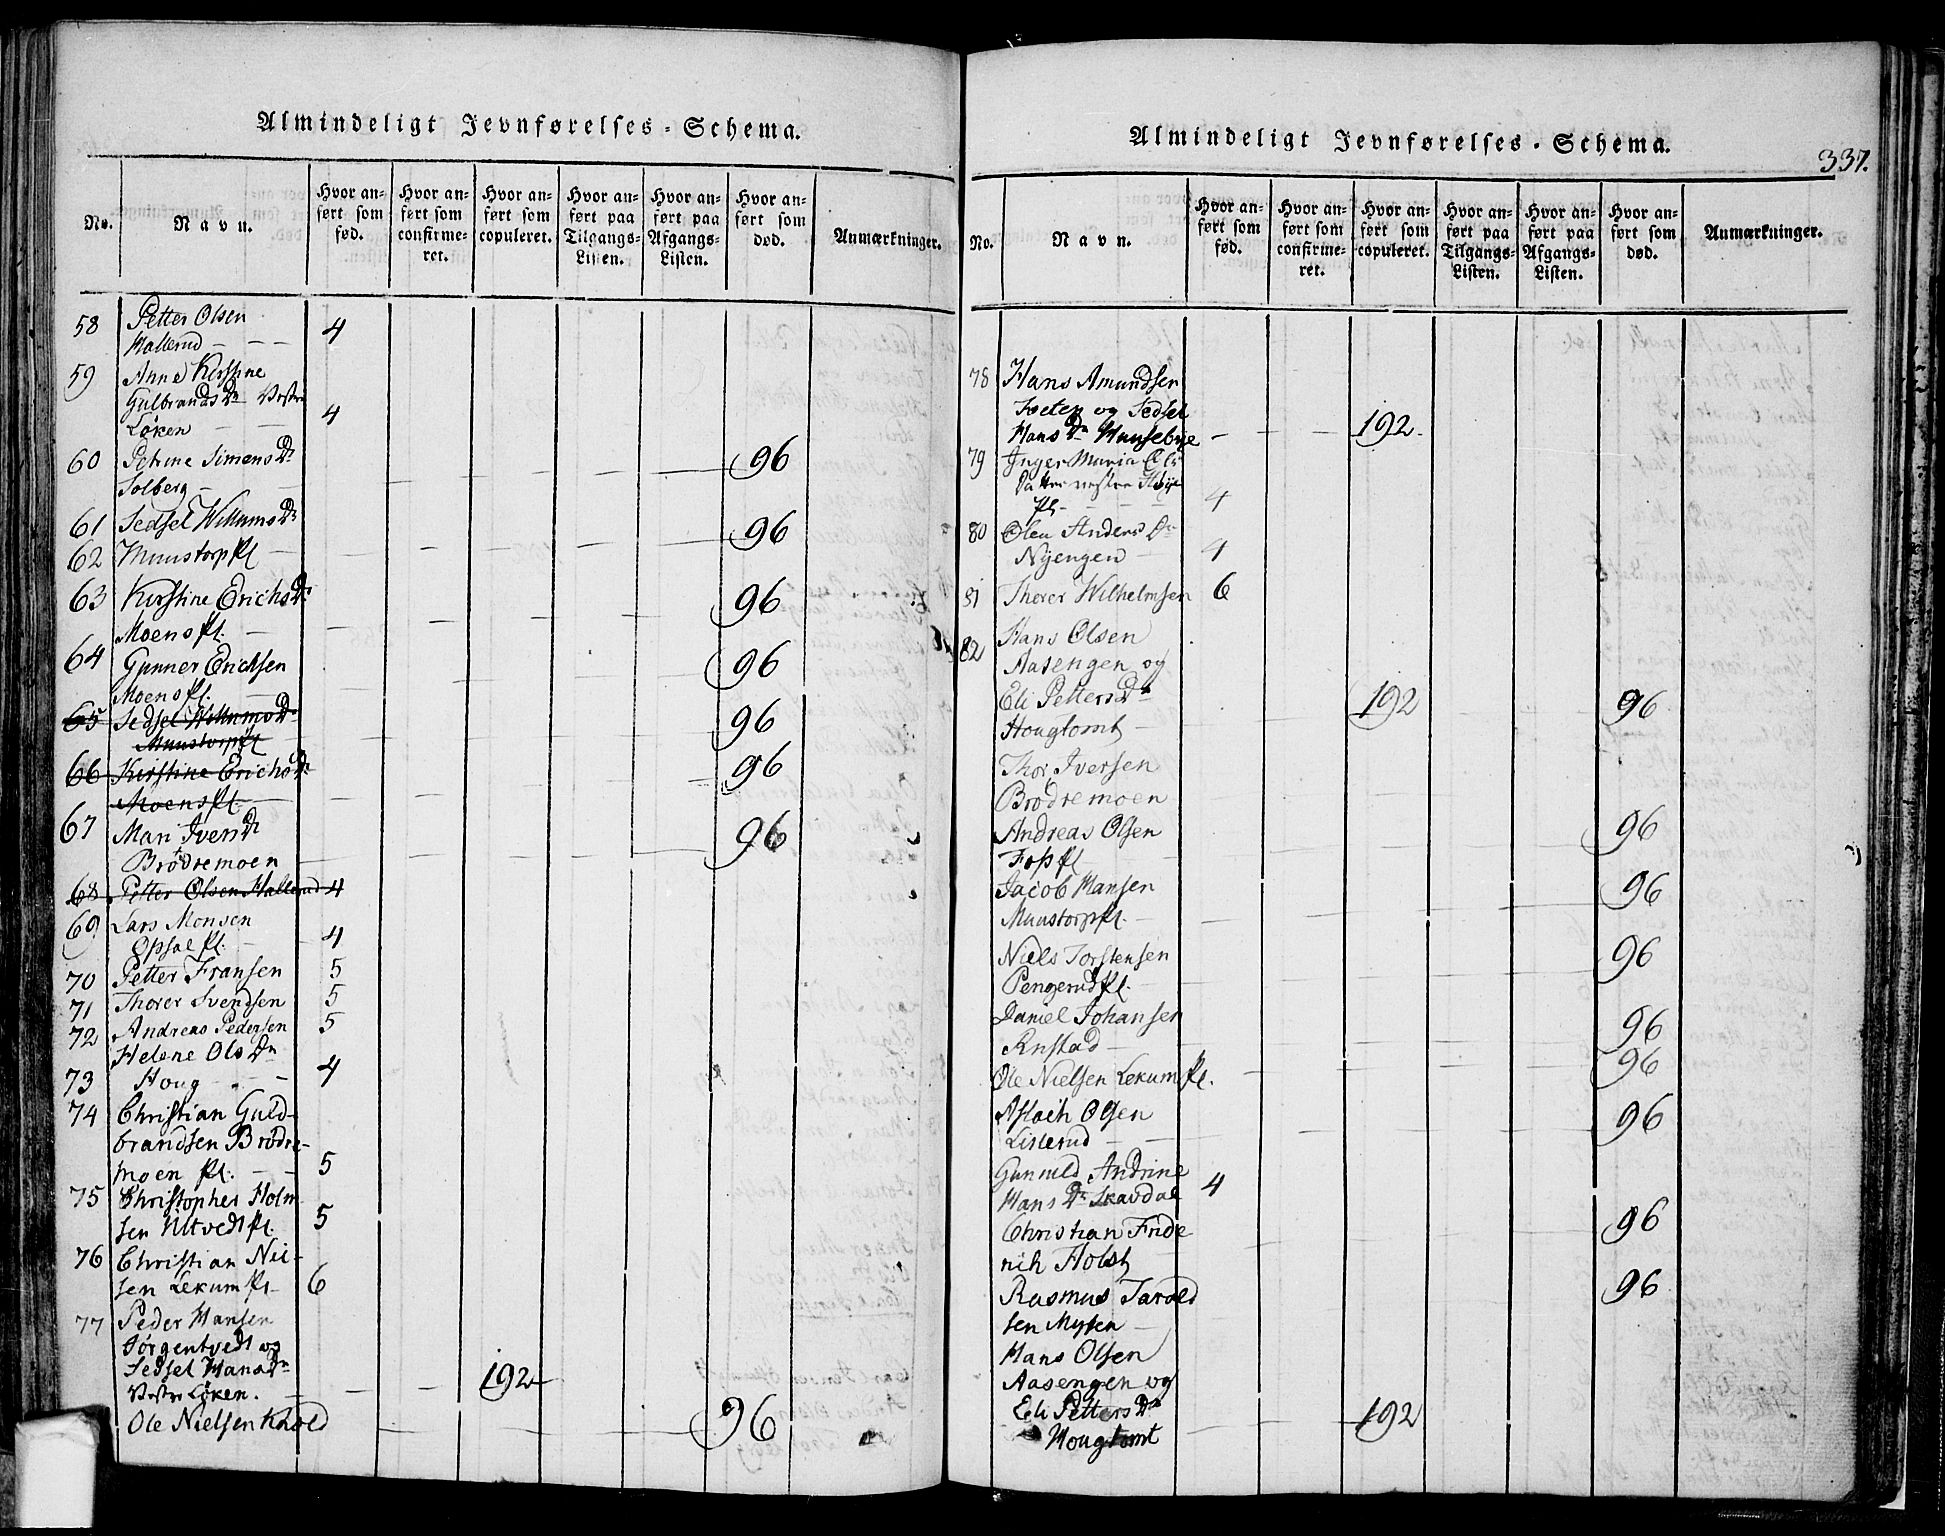 Almindeligt Jevnførelses-Schema.
No.
Navn.
Hvor anført som fød.
Hvor anført som confirmeret.
Hvor anført som copuleret.
Hvor anført paa Tilgangs-Listen.
Hvor anført paa Afgangs-Listen.
Hvor anført som død.
Anmærkninger.
58 Petter Olsen
Hallerud 4
59 Anne Kirstine
Gulbrands Dr Vestre
Løken 4
60 Petrine Simens Dr 96
Solberg
61 Sedsel Willums Dr
62 Muustorp Pl 96
63 Kirstine Erichs Dr 96
Moens Pl.
64 Gunner Erichsen 96
Moens Pl.
65 Sedsel Willums Dr 96
Muustorp Pl
66 Kirstine Erichs Dr 96
Moens Pl.
67 Mari Ivers Dr 96
Brødremoen
68 Petter Olsen Hallerud 4
69 Lars Monsen
Opsal Pl. 4
70 Petter Fransen 5
71 Thorer Svendsen 5
72 Andreas Pedersen 5
Helene Ols Dr
73 Houg 4
74 Christian Guld-
brandsen Brødre-
moen Pl. 5
75 Christopher Holm
sen Ultvedt Pl. 5
76 Christian Niel-
sen Lekum Pl. 6
77 Peder Hansen
Jørgentvedt og
Sedsel Hans Dr 192
Vestre Løken.
Ole Nielsen Knold 96
Almindeligt Jevnførelses-Schema.
337.
No.
Navn.
Hvor anført som fød.
Hvor anført som confirmeret.
Hvor anført som copuleret.
Hvor anført paa Tilgangs-Listen.
Hvor anført paa Afgangs-Listen.
Hvor anført som død.
Anmærkninger.
78 Hans Amundsen
og Sedsel
Hans Dr Huusebye 192
79 Inger Maria Ols
Datter vestre Høije
Pl. 4
80 Olea Anders Dr
Nyengen 4
81 Thorer Wilhelmsen 6
82 Hans Olsen
Aasengen og
Eli Petters Dr 192 96
Hougtomt
Thor Iversen
Brødremoen
Andreas Olsen 96
Foss Pl
Jacob Hansen 96
Muustorp Pl.
Niels Torstensen 96
Pengerud Pl.
Daniel Johansen 96
Rustad
Ole Nielsen Lekum Pl. 96
Aslach Olsen 96
Lislerud
Gunnild Andrine
Hans Dr Skavdal 4
Christian Fride 96
rich Holst
Rasmus Tarald 96
sen Mysen
Hans Olsen
Aasengen og
Eli Petters Dr 192
Hougtomt